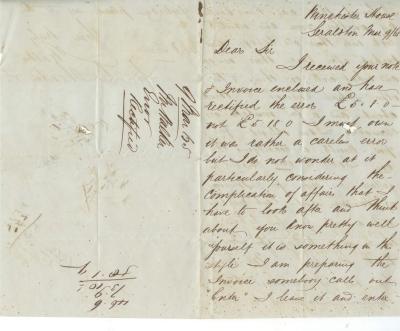 Winchester House
Geralston Mar 9/65
Dear Sir
I received your note
& Invoice enclosed and has
rectified the error £5.10
not £5 18 0 I must own
it was rather a careless error
but I do not wonder at it
particularly considering the
complication of affairs that I
have to look after and think
about you know pretty well
yourself it is something in the
style I am preparing the
Invoice somebody calls out
"Enter" I leave it and enter
9 Mar
Error
Rectified